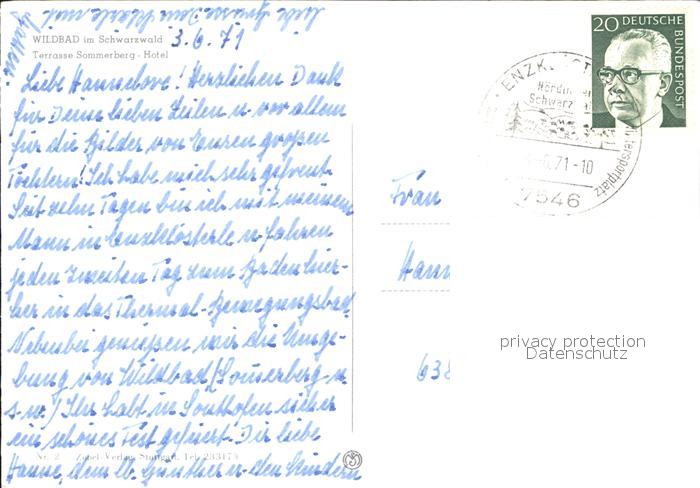 liebe Grüsse Deine
3.6.71
WILDBAD im Schwarzwald
Terrasse Sommerberg - Hotel
Liebe Hannelore! Herzlichen Dank
für Deine lieben Zeilen u. vor allem
für die Bilder von Euren großen
Töchtern! Ich habe mich sehr gefreut.
Seit zehn Tagen bin ich mit meinem
Mann in Enzklösterle u. fahren
jeden zweiten Tag zum Baden hier-
her in das Thermal-Bewegungsbad.
Nebenbei genießen wir die Umge-
bung von Wildbad (Sommerberg u.
s.w.) Ihr habt in Sonthofen sicher
ein schönes Fest gefeiert. Dir liebe
Hanne, dem lb. Günther u. den Kindern
Nr. 2 Zobel-Verlag, Stuttgart, Tel. 233175
20 DEUTSCHE
BUNDESPOST
ENZKL
Nördli
Schwarz
.71-10
7546
Wintersportplatz
Frau
Hann
638
privacy protection
Datenschutz